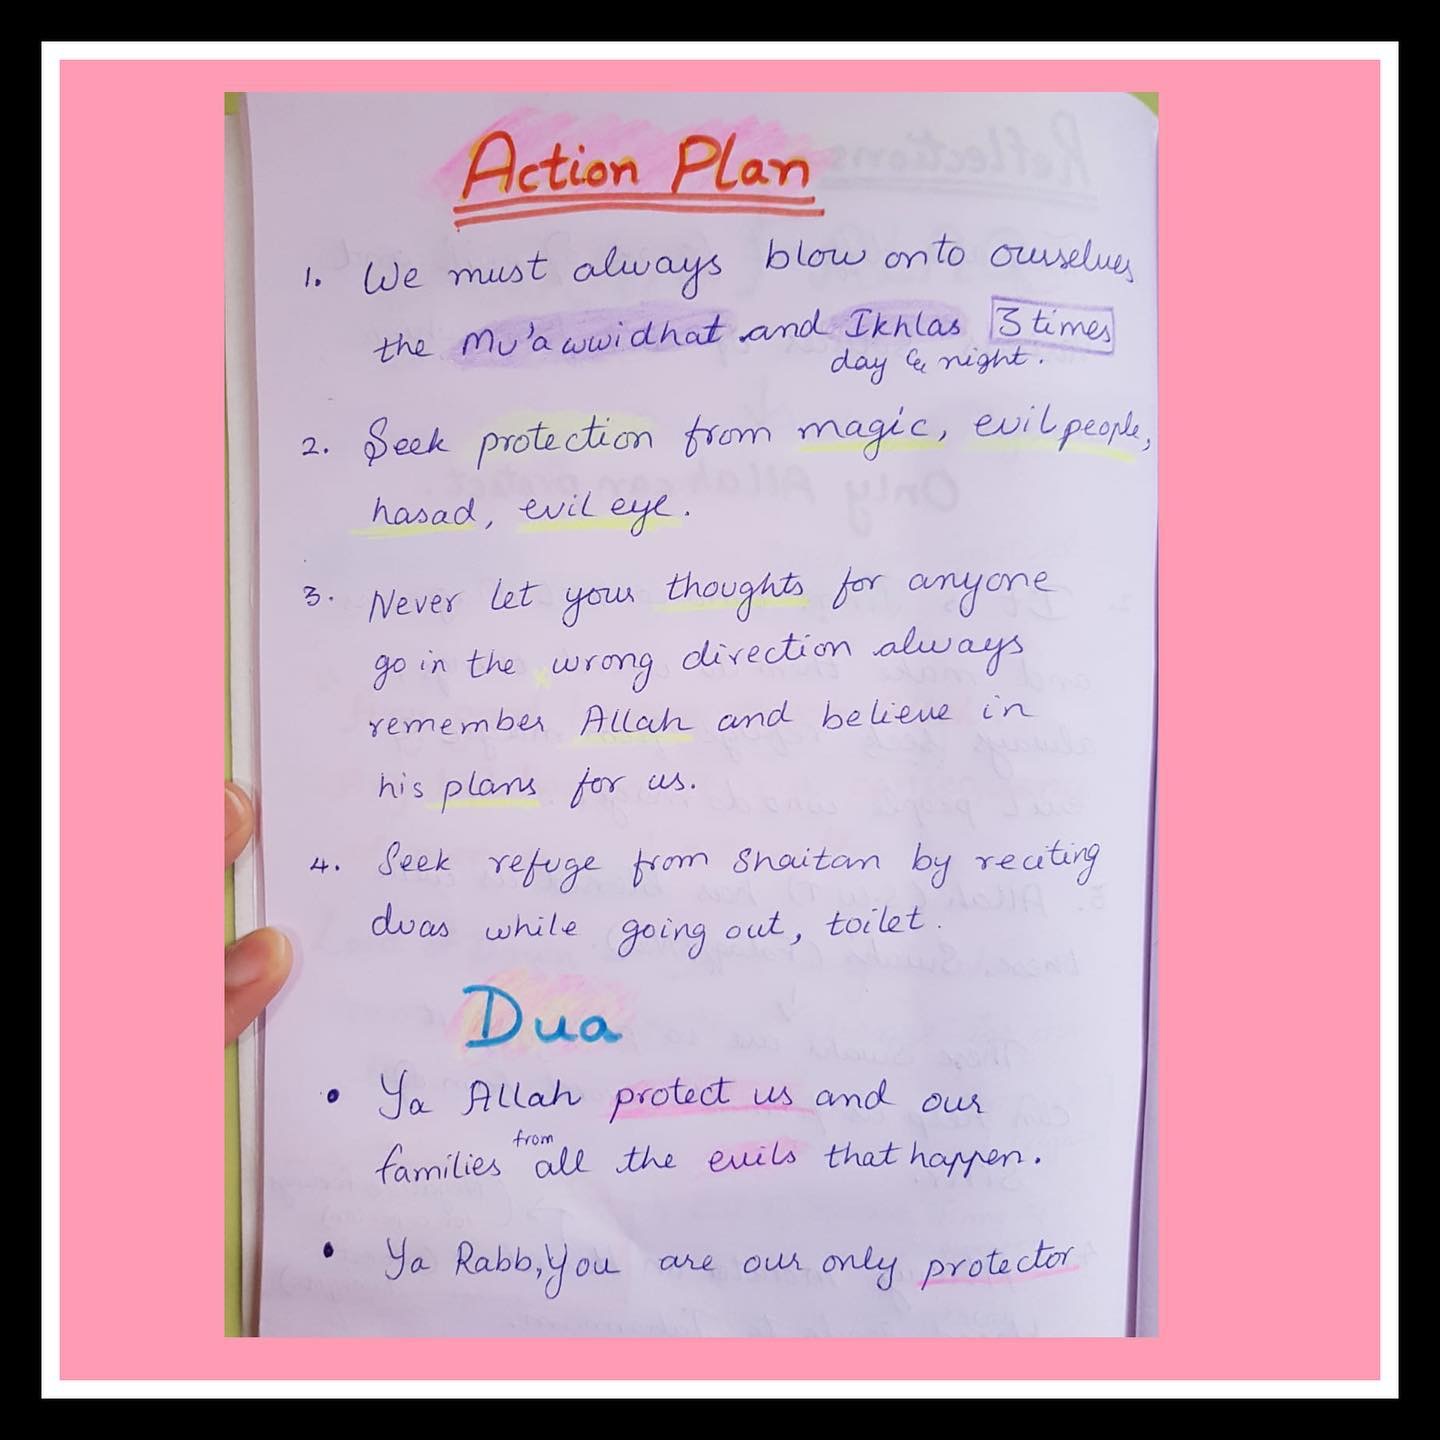 Action Plan
1. We must always blow onto ourselves
the Mu'awwidhat and Ikhlas 3 times
day & night.
2. Seek protection from magic, evil people,
hasad, evil eye.
3. Never let your thoughts for anyone
go in the wrong direction always
remember Allah and believe in
his plans for us.
4. Seek refuge from Shaitan by reciting
duas while going out, toilet.
Dua
• Ya Allah protect us and our
families from all the evils that happen.
• Ya Rabb, You are our only protector